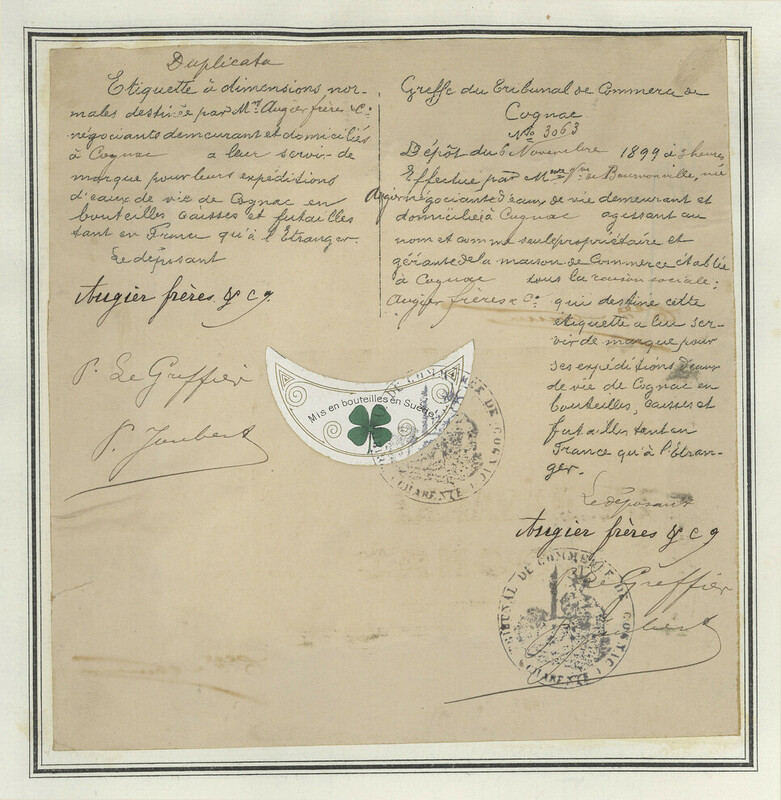 Duplicata
Etiquette à dimensions nor-
males destinée par Mrs Augier frère & Cie
négociants demeurant et domiciliés
à Cognac a leur servir de
marque pour leurs expéditions
d'eaux de vie de Cognac en
bouteilles caisses et futailles
tant en France qu'à l'Etranger.
Le déposant
Augier frères & Co
P. Le Greffier
P. Joubert
Greffe du Tribunal de Commerce de
Cognac
No 3063
Dépôt du 6 Novembre 1899 à 3 heures
Effectué par Mme Vve de Bournonville, née
Augier négociante d'eaux de vie demeurant et
domiciliée à Cognac agissant au
nom et comme seule propriétaire et
gérante de la maison de Commerce établie
à Cognac sous la raison sociale:
Augier frères & Co. qui destine cette
étiquette a lui ser-
vir de marque pour
ses expéditions d'eaux
de vie de Cognac en
bouteilles, caisses et
futailles tant en
France qu'à l'Etran-
ger.
Le déposant
Augier frères & Co
Le Greffier
Joubert
Mis en bouteilles en Suède
TRIBUNAL DE COMMERCE DE COGNAC
(CHARENTE)
TRIBUNAL DE COMMERCE DE COGNAC
(CHARENTE)